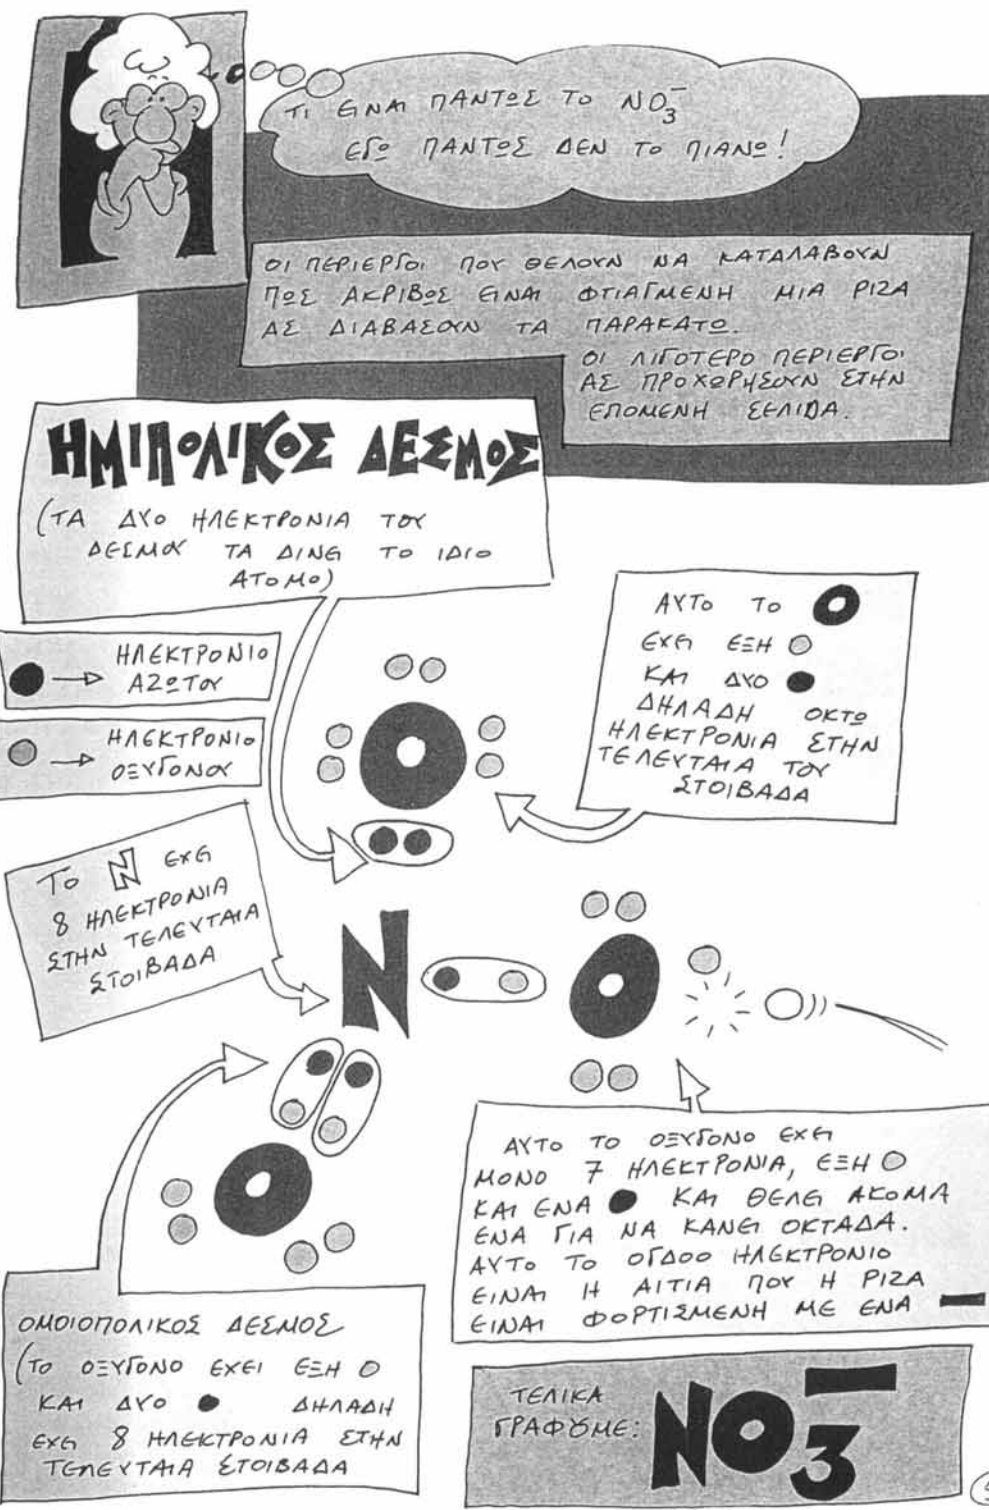 ΤΙ ΕΙΝΑΙ ΠΑΝΤΩΣ ΤΟ NO₃⁻
ΕΓΩ ΠΑΝΤΩΣ ΔΕΝ ΤΟ ΠΙΑΝΩ!
ΟΙ ΠΕΡΙΕΡΓΟΙ ΠΟΥ ΘΕΛΟΥΝ ΝΑ ΚΑΤΑΛΑΒΟΥΝ
ΠΩΣ ΑΚΡΙΒΩΣ ΕΙΝΑΙ ΦΤΙΑΓΜΕΝΗ ΜΙΑ ΡΙΖΑ
ΑΣ ΔΙΑΒΑΣΟΥΝ ΤΑ ΠΑΡΑΚΑΤΩ.
ΟΙ ΛΙΓΟΤΕΡΟ ΠΕΡΙΕΡΓΟΙ
ΑΣ ΠΡΟΧΩΡΗΣΟΥΝ ΣΤΗΝ
ΕΠΟΜΕΝΗ ΣΕΛΙΔΑ.
ΗΜΙΠΟΛΙΚΟΣ ΔΕΣΜΟΣ
(ΤΑ ΔΥΟ ΗΛΕΚΤΡΟΝΙΑ ΤΟΥ
ΔΕΣΜΟΥ ΤΑ ΔΙΝΕΙ ΤΟ ΙΔΙΟ
ΑΤΟΜΟ)
ΑΥΤΟ ΤΟ Ο
ΕΧΕΙ ΕΞΗ
ΚΑΙ ΔΥΟ
ΔΗΛΑΔΗ ΟΚΤΩ
ΗΛΕΚΤΡΟΝΙΑ ΣΤΗΝ
ΤΕΛΕΥΤΑΙΑ ΤΟΥ
ΣΤΟΙΒΑΔΑ
ΗΛΕΚΤΡΟΝΙΟ
ΑΖΩΤΟΥ
ΗΛΕΚΤΡΟΝΙΟ
ΟΞΥΓΟΝΟΥ
Ο
ΤΟ N ΕΧΕΙ
8 ΗΛΕΚΤΡΟΝΙΑ
ΣΤΗΝ ΤΕΛΕΥΤΑΙΑ
ΣΤΟΙΒΑΔΑ
N Ο
Ο
ΑΥΤΟ ΤΟ ΟΞΥΓΟΝΟ ΕΧΕΙ
ΜΟΝΟ 7 ΗΛΕΚΤΡΟΝΙΑ, ΕΞΗ
ΚΑΙ ΕΝΑ ΚΑΙ ΘΕΛΕΙ ΑΚΟΜΑ
ΕΝΑ ΓΙΑ ΝΑ ΚΑΝΕΙ ΟΚΤΑΔΑ.
ΑΥΤΟ ΤΟ ΟΓΔΟΟ ΗΛΕΚΤΡΟΝΙΟ
ΕΙΝΑΙ Η ΑΙΤΙΑ ΠΟΥ Η ΡΙΖΑ
ΕΙΝΑΙ ΦΟΡΤΙΣΜΕΝΗ ΜΕ ΕΝΑ −
ΟΜΟΙΟΠΟΛΙΚΟΣ ΔΕΣΜΟΣ
(ΤΟ ΟΞΥΓΟΝΟ ΕΧΕΙ ΕΞΗ
ΚΑΙ ΔΥΟ ΔΗΛΑΔΗ
ΕΧΕΙ 8 ΗΛΕΚΤΡΟΝΙΑ ΣΤΗΝ
ΤΕΛΕΥΤΑΙΑ ΣΤΟΙΒΑΔΑ
ΤΕΛΙΚΑ
ΓΡΑΦΟΥΜΕ:
NO₃⁻